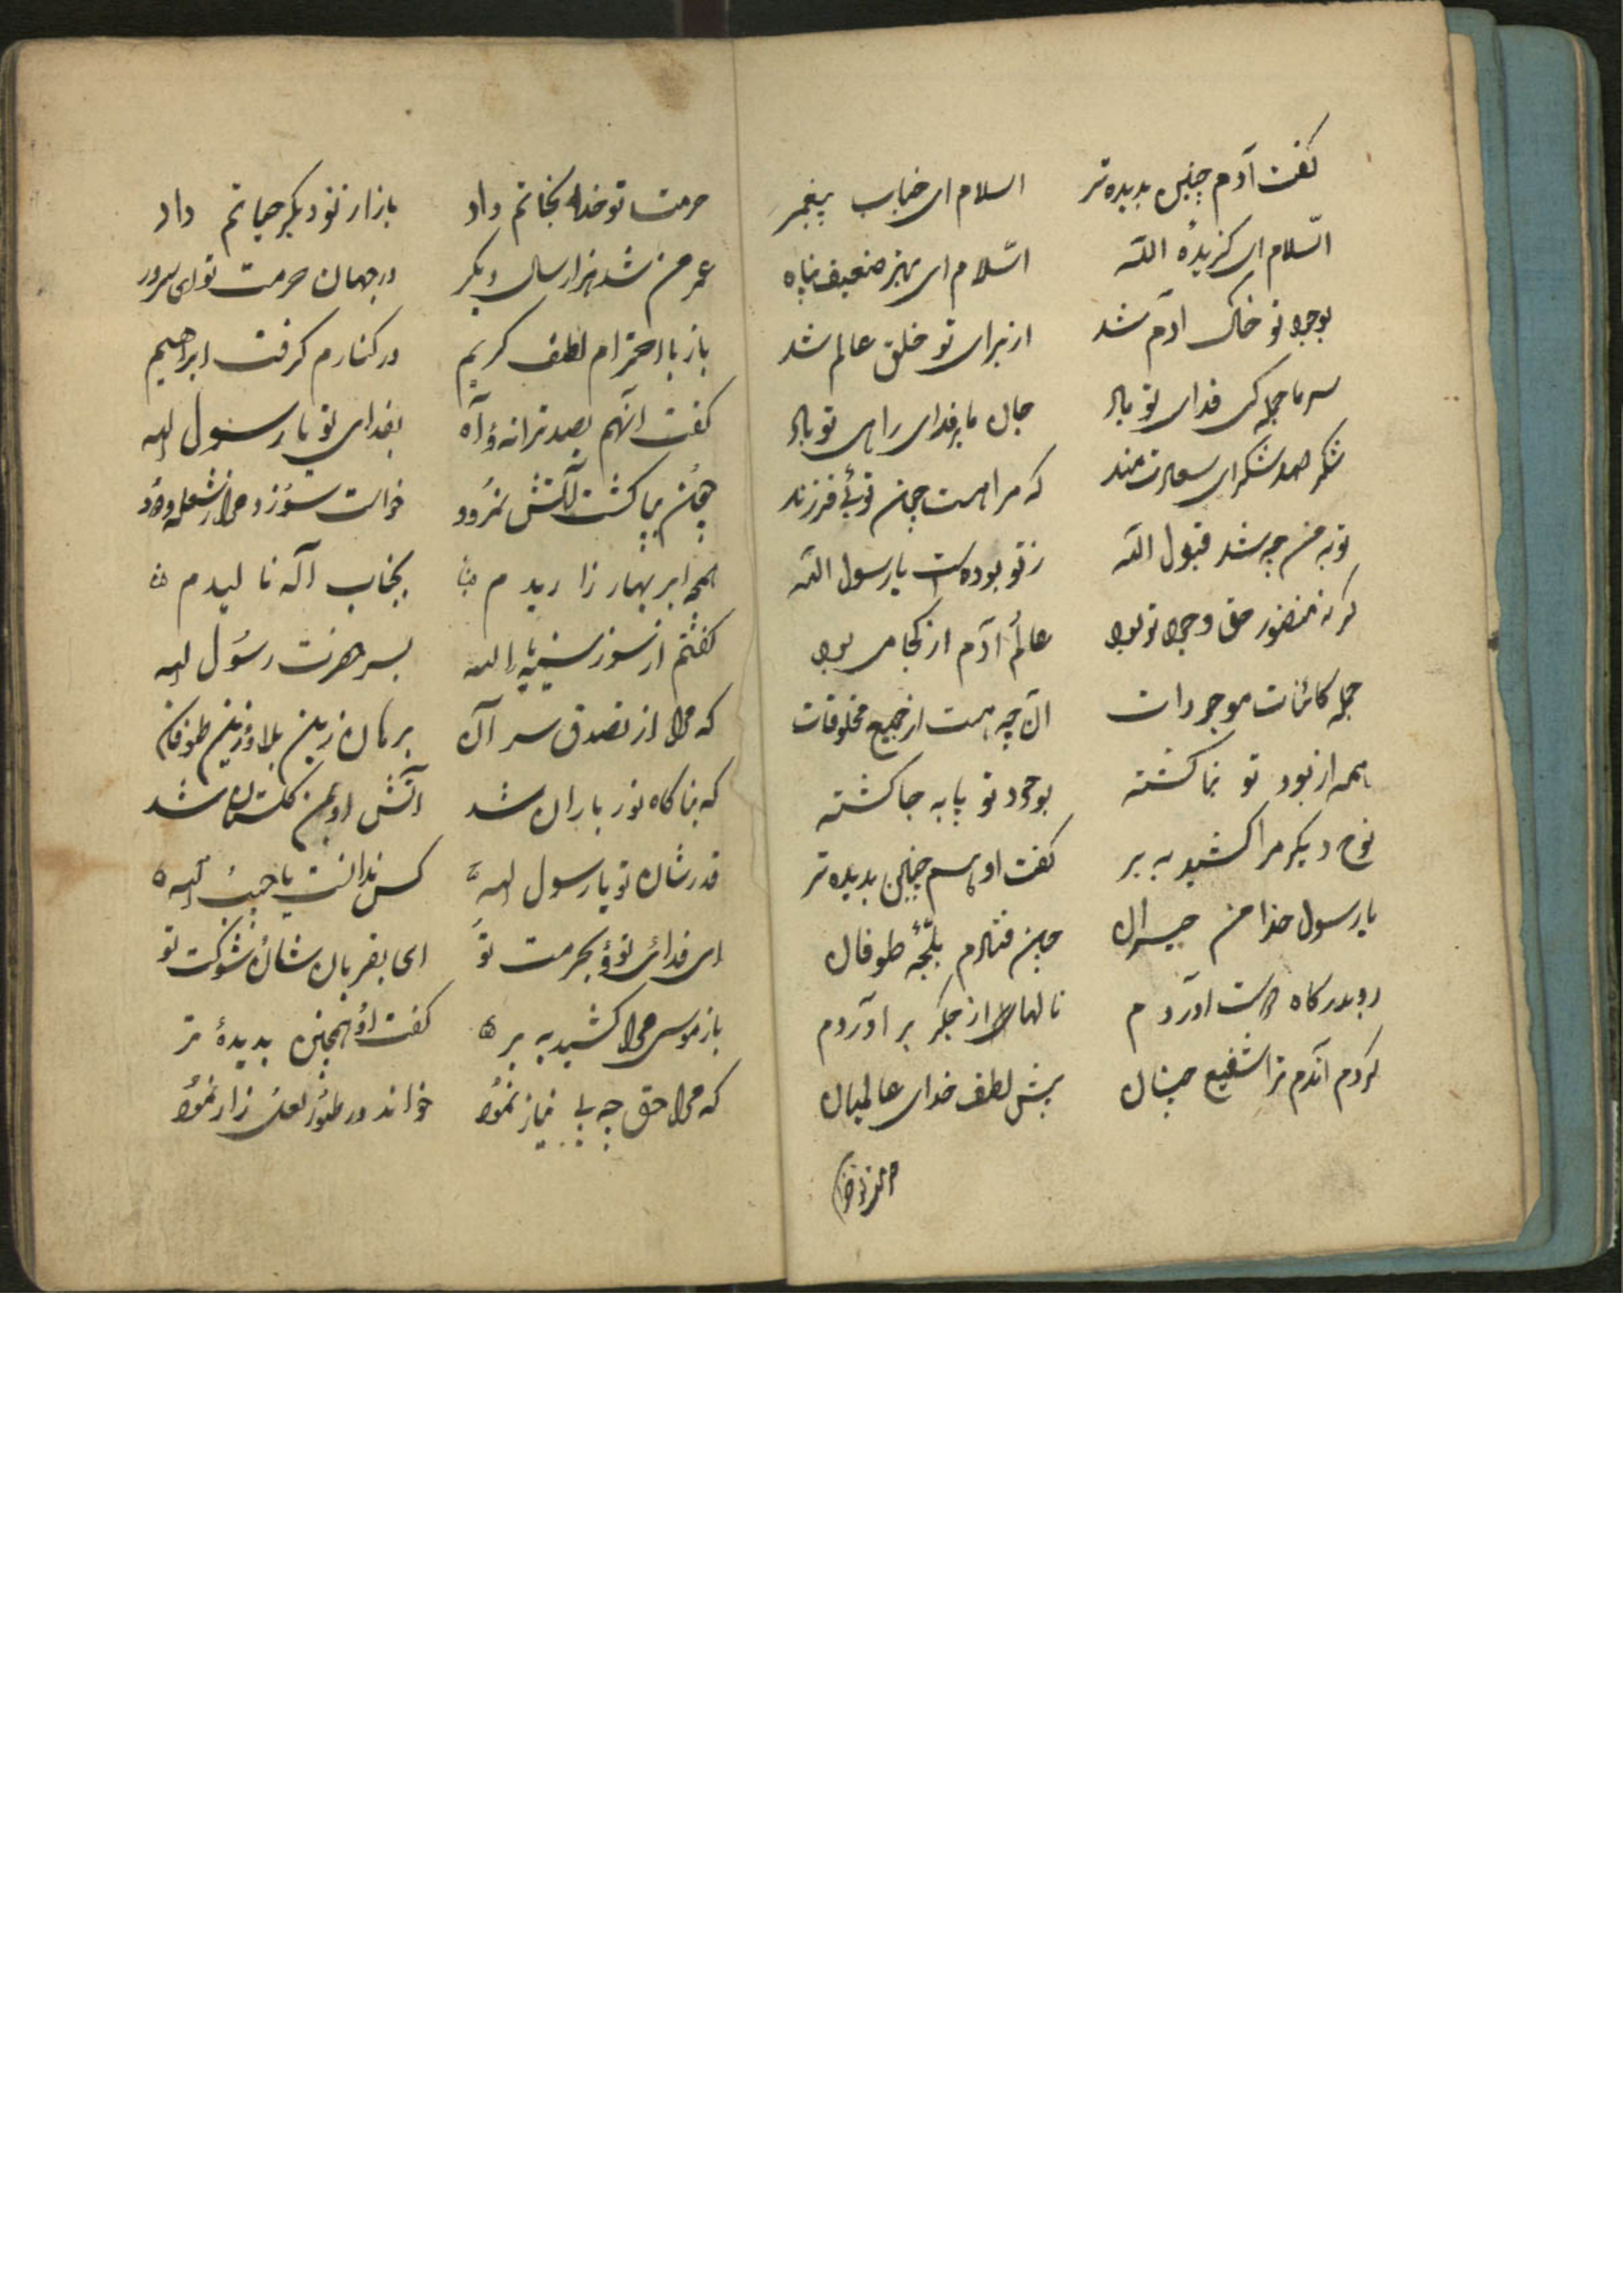 گفت آدم چنین بدیده تر السلام ای جناب پیغمبر
السّلام ای گزیدهٔ اللّه السّلام ای بهر ضعیف پناه
بوجود تو خاک آدم شد از برای تو خلق عالم شد
سر ما جمله کی فدای تو باد جان ما بر فدای رای تو باد
شکر صد شکر ای سعادت مند که مرا هست چون توئی فرزند
توبه من چه شد قبول اللّه ز تو بوده است یا رسول اللّه
گر نه منضور حق وجود تو بود عالم آدم از کجا می بود
جمله کائنات موجودات آن چه هست از جمیع مخلوقات
همه از بود تو نما گشته بوجود تو پا به جا گشته
نوح دیگر مرا کشید به بر گفت او هم چنین بدیده تر
یا رسول خدا من حیران چون فتادم بلجّهٔ طوفان
رو بدرگاه دوست آوردم نالها از جگر بر آوردم
کردم آندم ترا شفیع چنان پیش لطف خدای عالمیان
حرمت تو خدا
حرمت تو خدا نجاتم داد باز از نو دیگر حیاتم داد
عمر من شد هزار سال دیگر در جهان حرمت تو ای سرور
باز با احترام لطف کریم در کنارم گرفت ابراهیم
گفت آنهم بصد ترانه و آه بفدای تو یا رسول اله
چون بپا گشت آتش نمرود خواست سوزد مرا ز شعله و دود
همچه ابر بهار زاریدم بجناب اله نالیدم
گفتم از سوز سینه یا اللّه بسر حضرت رسول اله
که مرا از تصدق سر آن برهان زین بلا و زین طوفان
که بناگاه نور باران شد آتش او بمن گلستان شد
قدر شان تو یا رسول اله کس ندانست یا حبیب اله
ای فدای تو و بحرمت تو ای بقربان شان شوکت تو
باز موسی مرا کشید به بر گفت او همچنین بدیدهٔ تر
که مرا حق چه بی نیاز نمود خواند در طور لعن زار نمود